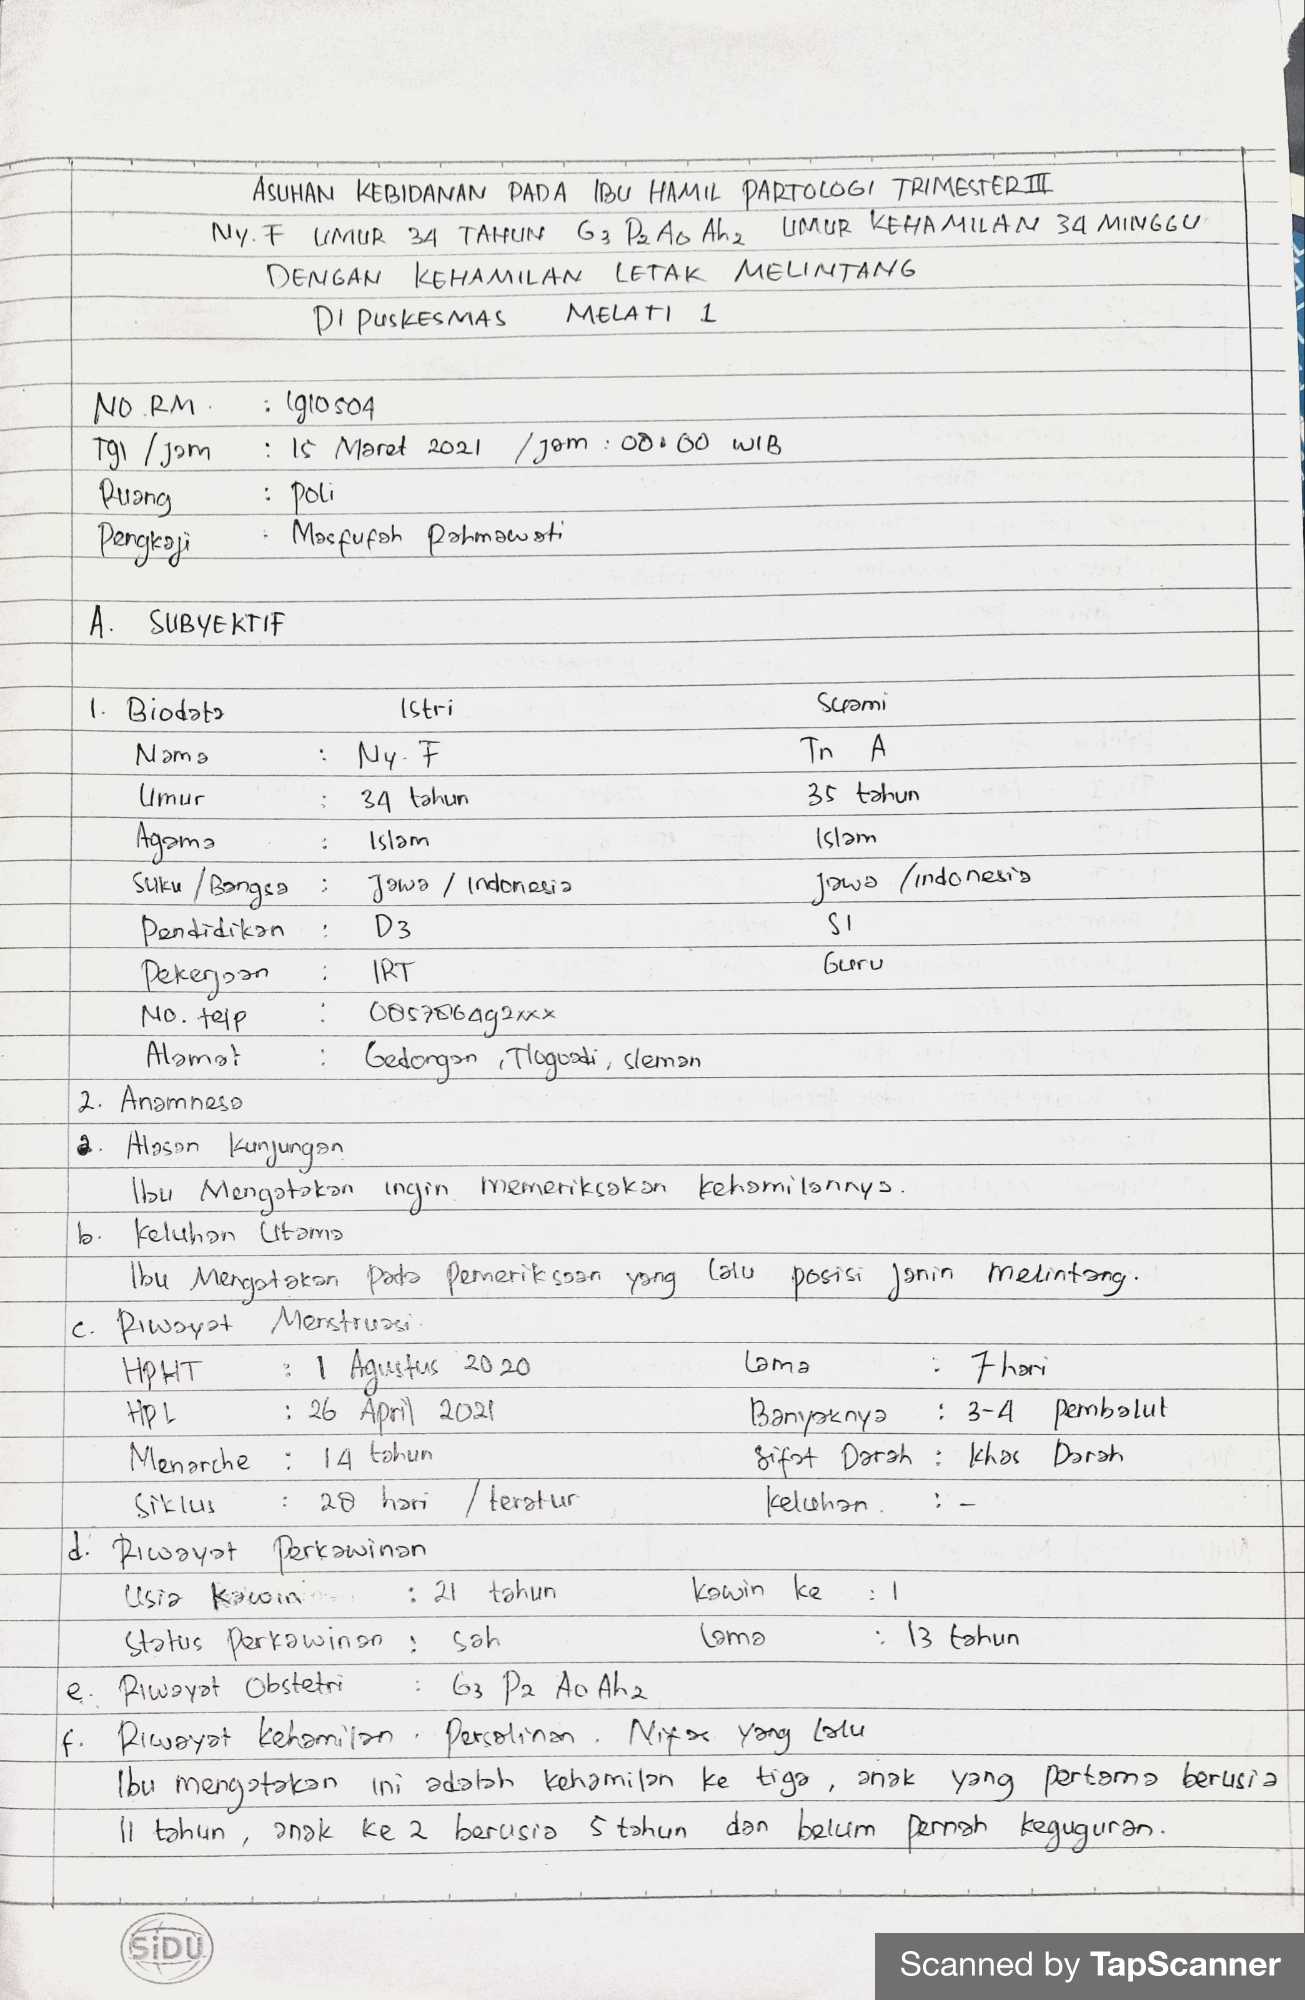 ASUHAN KEBIDANAN PADA IBU HAMIL PARTOLOGI TRIMESTER III
Ny. F UMUR 34 TAHUN G3 P2 A0 Ah2 UMUR KEHAMILAN 34 MINGGU
DENGAN KEHAMILAN LETAK MELINTANG
DI PUSKESMAS MELATI 1
NO.RM. : 1910504
Tgl /jam : 15 Maret 2021 /jam : 08.00 WIB
Ruang : poli
Pengkaji : Masfufah Rahmawati
A. SUBYEKTIF
1. Biodata Istri Suami
Nama : Ny. F Tn A
Umur : 34 tahun 35 tahun
Agama : Islam Islam
Suku /Bangsa : Jawa / Indonesia Jawa /Indonesia
Pendidikan : D3 S1
Pekerjaan : IRT Guru
No. telp : 085786492xxx
Alamat : Gedongan , Tlogoadi, Sleman
2. Anamnesa
a. Alasan Kunjungan
Ibu Mengatakan ingin memeriksakan kehamilannya.
b. Keluhan Utama
Ibu Mengatakan pada pemeriksaan yang lalu posisi janin melintang.
c. Riwayat Menstruasi.
HPHT : 1 Agustus 2020 Lama : 7 hari
HPL : 26 April 2021 Banyaknya : 3-4 pembalut
Menarche : 14 tahun Sifat Darah : Khas Darah
Siklus : 28 hari / teratur Keluhan. : -
d. Riwayat Perkawinan
Usia Kawin : 21 tahun Kawin ke : 1
Status Perkawinan : Sah Lama : 13 tahun
e. Riwayat Obstetri : G3 P2 A0 Ah2
f. Riwayat kehamilan . Persalinan . Nifas yang lalu
Ibu mengatakan ini adalah kehamilan ke tiga , anak yang pertama berusia
11 tahun , anak ke 2 berusia 5 tahun dan belum pernah keguguran.
SiDU
Scanned by TapScanner